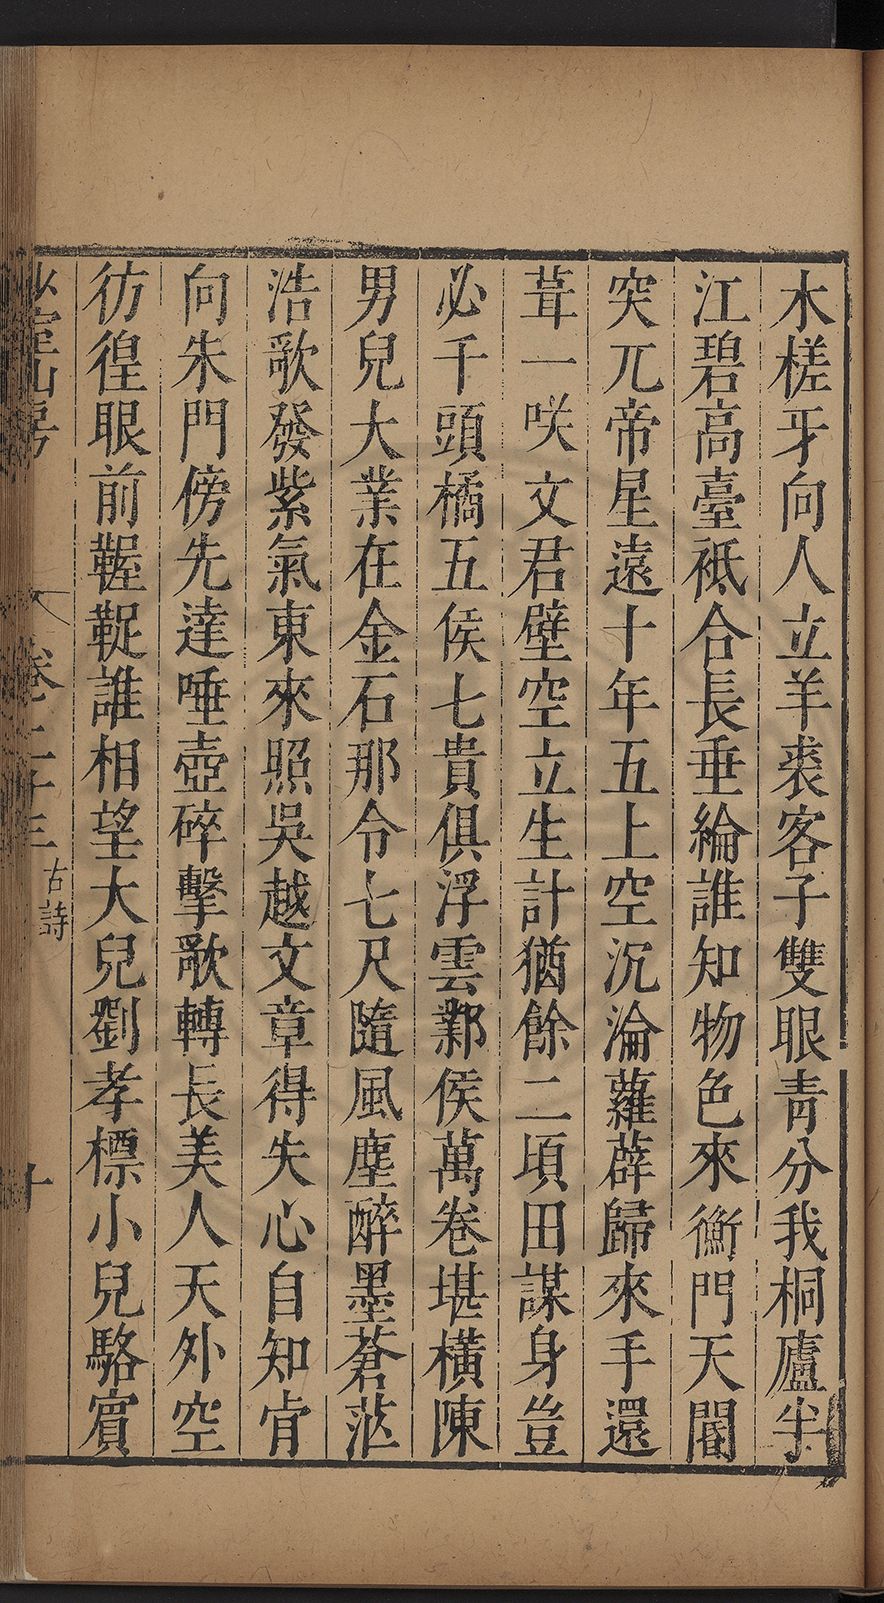 木槎牙向人立羊裘客子雙眼青分我桐廬半
江碧高臺袛合長垂綸誰知物色來衡門天閽
突兀帝星遠十年五上空沉淪蘿薜歸來手還
葺一咲文君壁空立生計猶餘二頃田謀身豈
必千頭橘五侯七貴俱浮雲鄴侯萬卷堪橫陳
男兒大業在金石那令七尺隨風塵醉墨蒼茫
浩歌發紫氣東來照吳越文章得失心自知肯
向朱門傍先達唾壺碎擊歌轉長美人天外空
彷徨眼前齷齪誰相望大兒劉孝標小兒駱賓
少室山房
卷二十三
古詩
十